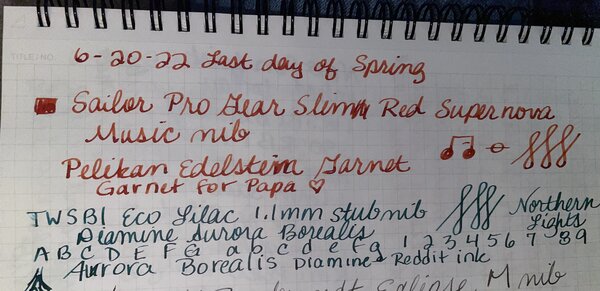 TITLE/NO.
6-20-22 Last day of Spring
Sailor Pro Gear Slim Red Supernova
Music nib
Pelikan Edelstein Garnet
Garnet for Papa ♡
TWSBI Eco Lilac 1.1mm stub nib Northern Lights
Diamine Aurora Borealis
A B C D E F G a b c d e f g 1 2 3 4 5 6 7 8 9
Aurora Borealis Diamine Reddit ink
M nib